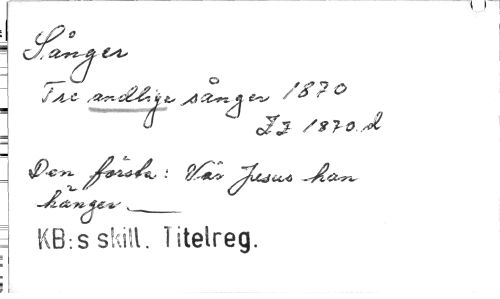 Sånger
Tre andlige sånger 1870
ZZ 1870.d
Den första: Vår Jesus han
hänger
KB:s skill. Titelreg.